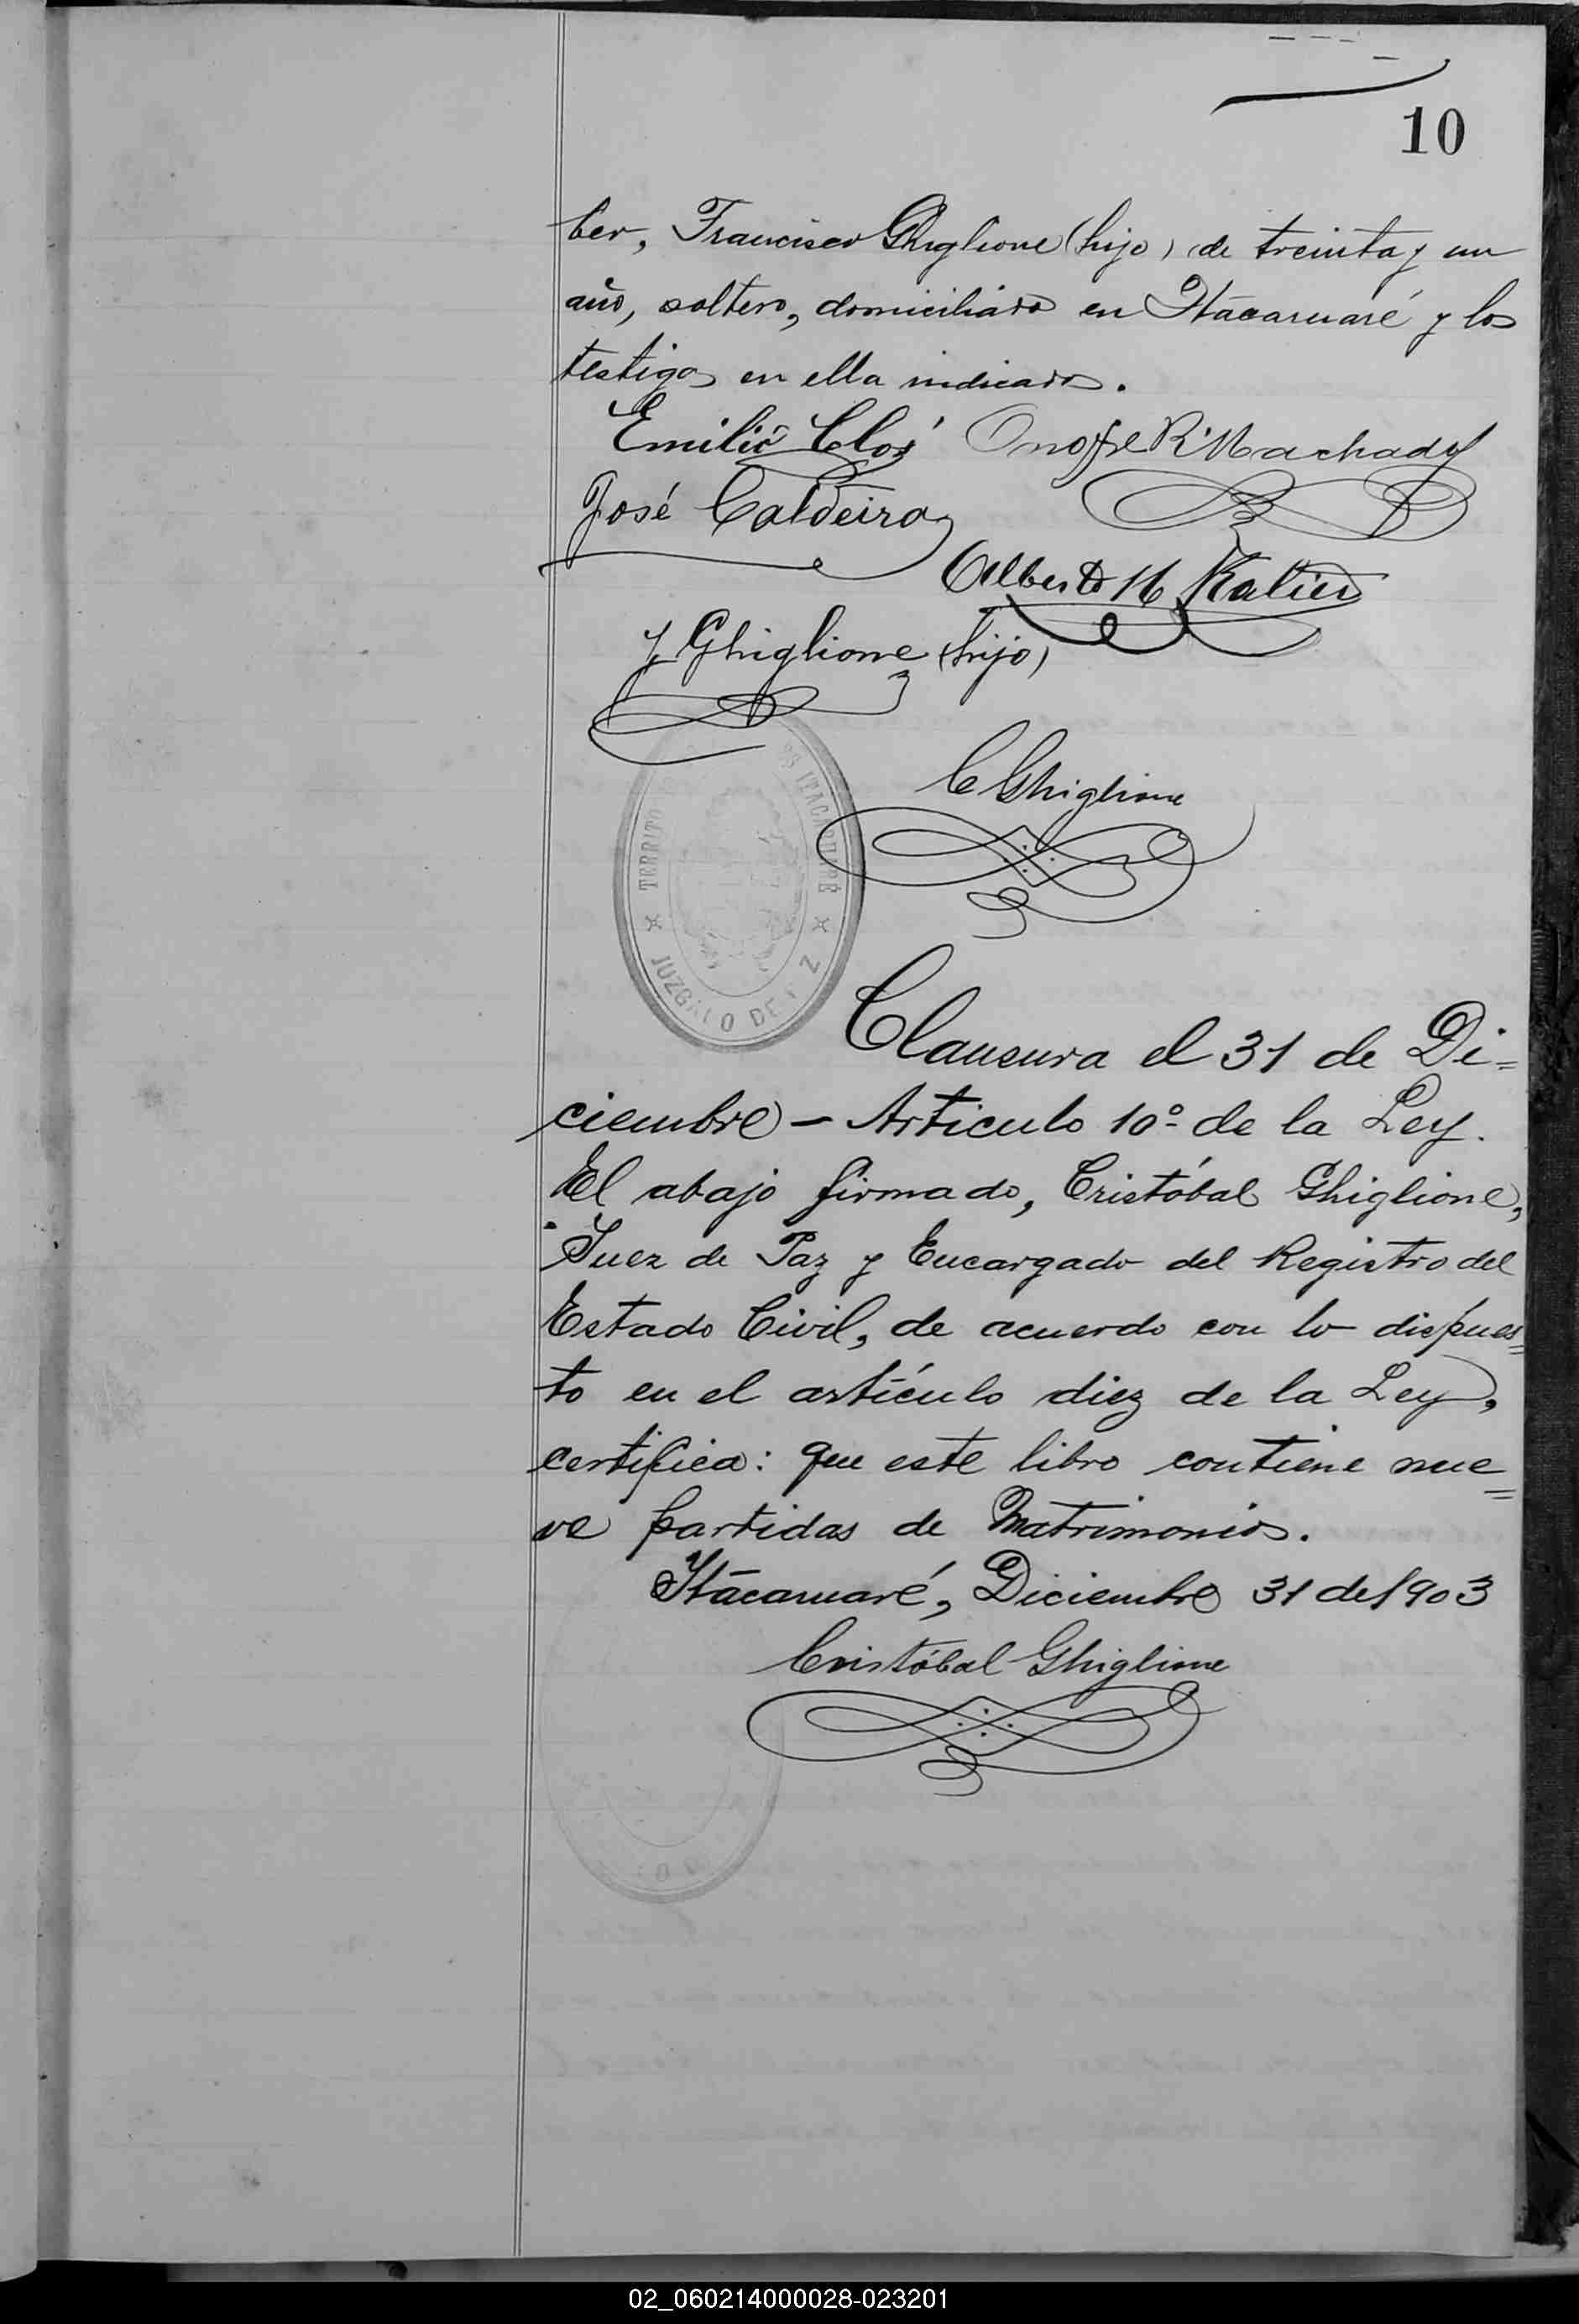 10
ber, Francisco Ghiglione (hijo) de treinta y un
año, soltero, domiciliado en Itacaruaré y los
testigos en ella indicados.
Emilio Clos Onofre R Machado
José Caldeira
Alberto M
F Ghiglione (hijo)
C Ghiglione
TERRITO ES ITACARUARÉ
JUZGADO DE PAZ
Clausura el 31 de Di=
ciembre — Articulo 10º de la Ley.
El abajo firmado, Cristóbal Ghiglione,
Juez de Paz y Encargado del Registro del
Estado Civil, de acuerdo con lo dispues=
to en el artículo diez de la Ley,
certifica: que este libro contiene nue=
ve partidas de Matrimonios.
Itacaruaré, Diciembre 31 de 1903
Cristóbal Ghiglione
02_060214000028-023201